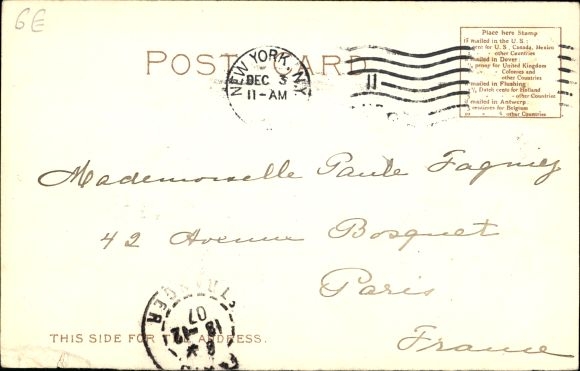 6E
POST CARD
NEW YORK, N.Y.
DEC 3
11-AM
11
Place here Stamp
If mailed in the U.S.:
cent for U.S., Canada, Mexico
other Countries
mailed in Dover
penny for United Kingdom
Colonies and
other Countries
mailed in Flushing
Dutch cents for Holland
other Countries
mailed in Antwerp:
centimes for Belgium
other Countries
Mademoiselle Paule Fagniez
42 Avenue Bosquet
Paris
France
THIS SIDE FOR THE ADDRESS.
ETRANGER
18-12
07